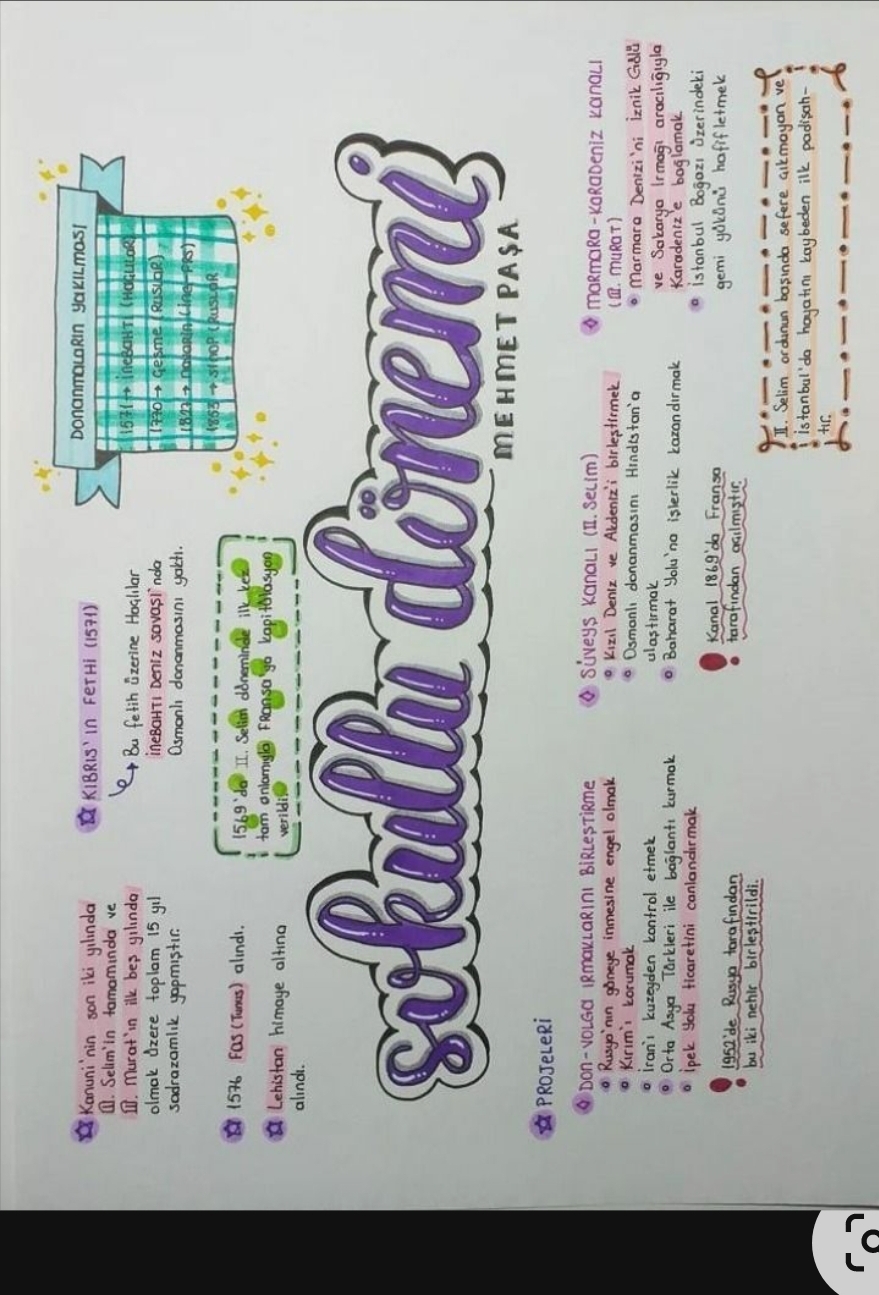 Kanuni'nin son iki yılında
II. Selim'in tamamında ve
III. Murat'ın ilk beş yılında
olmak üzere toplam 15 yıl
sadrazamlık yapmıştır.
1576 Fas (Tunus) alındı.
Lehistan himaye altına
alındı.
KIBRIS'ın FETHİ (1571)
Bu fetih üzerine Haçlılar
İNEBAHTI DENİZ SAVAŞI'nda
Osmanlı donanmasını yaktı.
1569'da II. Selim döneminde ilk kez
tam anlamıyla FRansa'ya kapitülasyon
verildi.
DONANMALARIN YAKILMASI
1571→ İNEBAHTI (HAÇLILAR)
1770→ Çeşme (RUSLAR)
1827→ Navarin (İng-FRS)
1853→ SİNOP (RUSLAR
sokullu dönemi
MEHMET PAŞA
PROJELERİ
DON-VOLGA IRMAKLARINI BİRLEŞTİRME
Rusya'nın güneye inmesine engel olmak
Kırım'ı korumak
İran'ı kuzeyden kontrol etmek
Orta Asya Türkleri ile bağlantı kurmak
İpek Yolu ticaretini canlandırmak
1952'de Rusya tarafından
bu iki nehir birleştirildi.
SÜVEYŞ KANALI (II. SELİM)
Kızıl Deniz ve Akdeniz'i birleştirmek
Osmanlı donanmasını Hindistan'a
ulaştırmak
Baharat Yolu'na işlerlik kazandırmak
Kanal 1869'da Fransa
tarafından açılmıştır.
MARMARA-KARADENİZ KANALI
(III. MURAT)
Marmara Denizi'ni İznik Gölü
ve Sakarya Irmağı aracılığıyla
Karadeniz'e bağlamak.
İstanbul Boğazı üzerindeki
gemi yükünü hafifletmek
II. Selim ordunun başında sefere çıkmayan ve
İstanbul'da hayatını kaybeden ilk padişah-
tır.